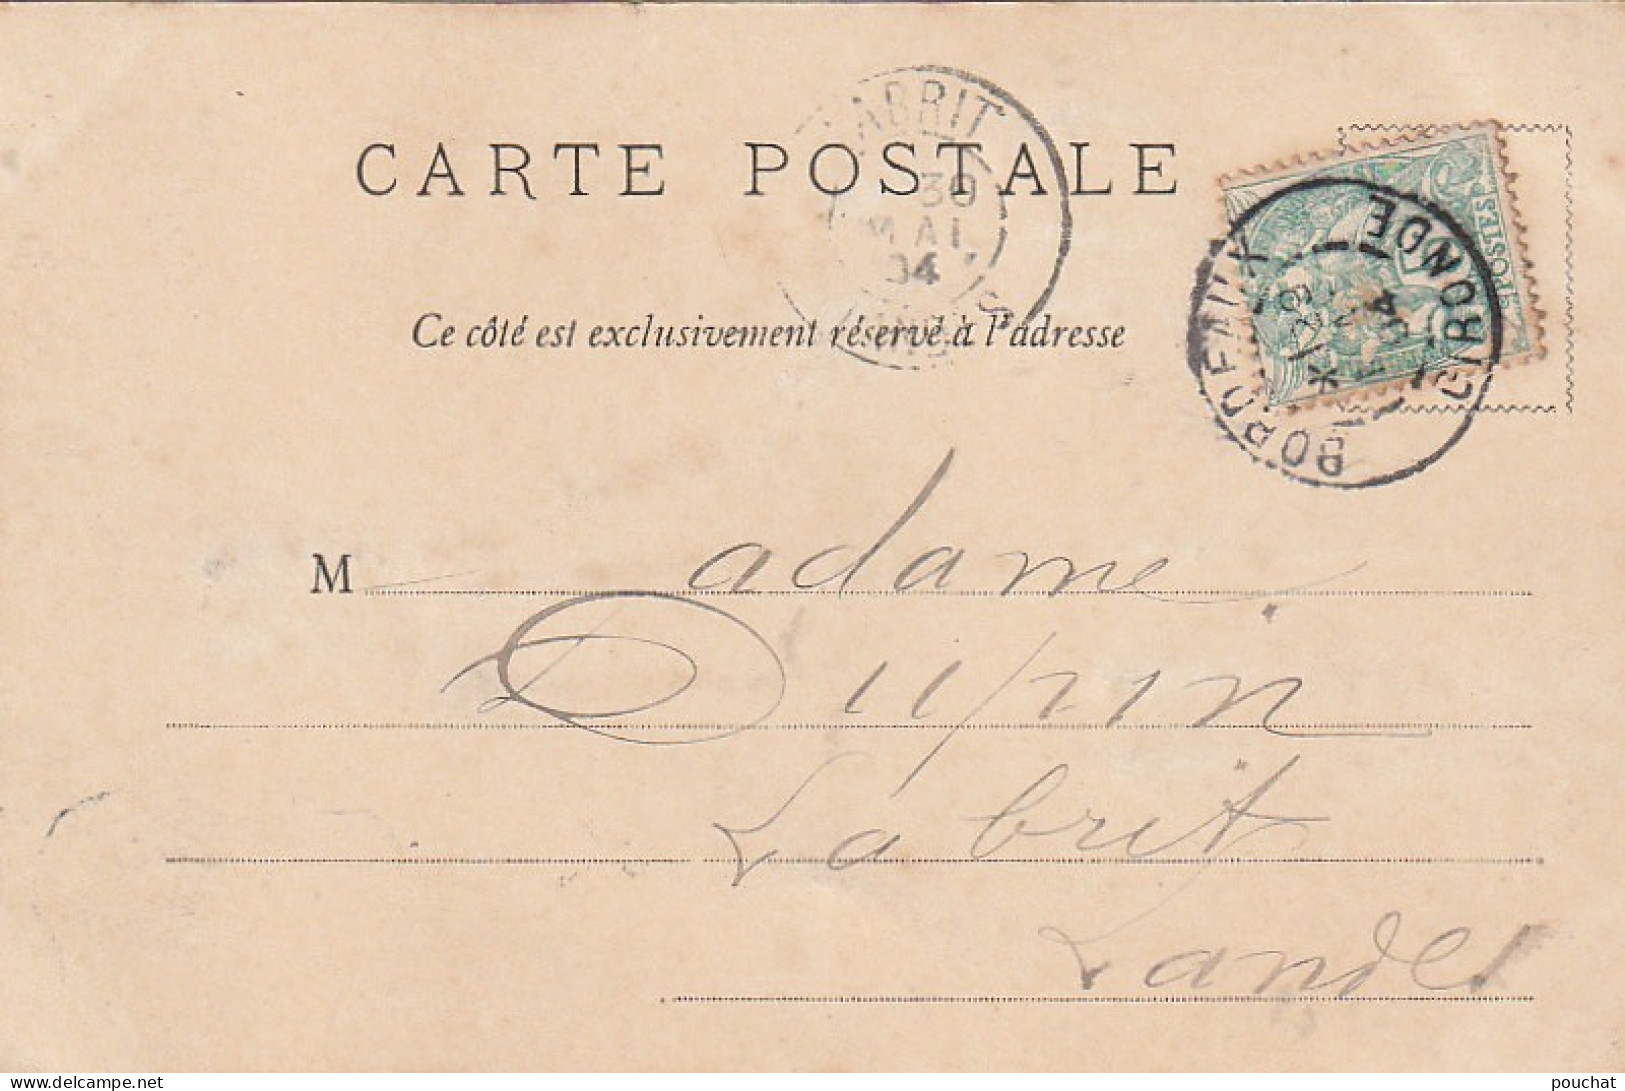 ABRIT
30
MAI
04
CARTE POSTALE
POSTES
BORDEAUX
GIRONDE
04
Ce côté est exclusivement réservé à l'adresse
Madame
Dupin
Labrit
Landes
www.delcampe.net
pouchat